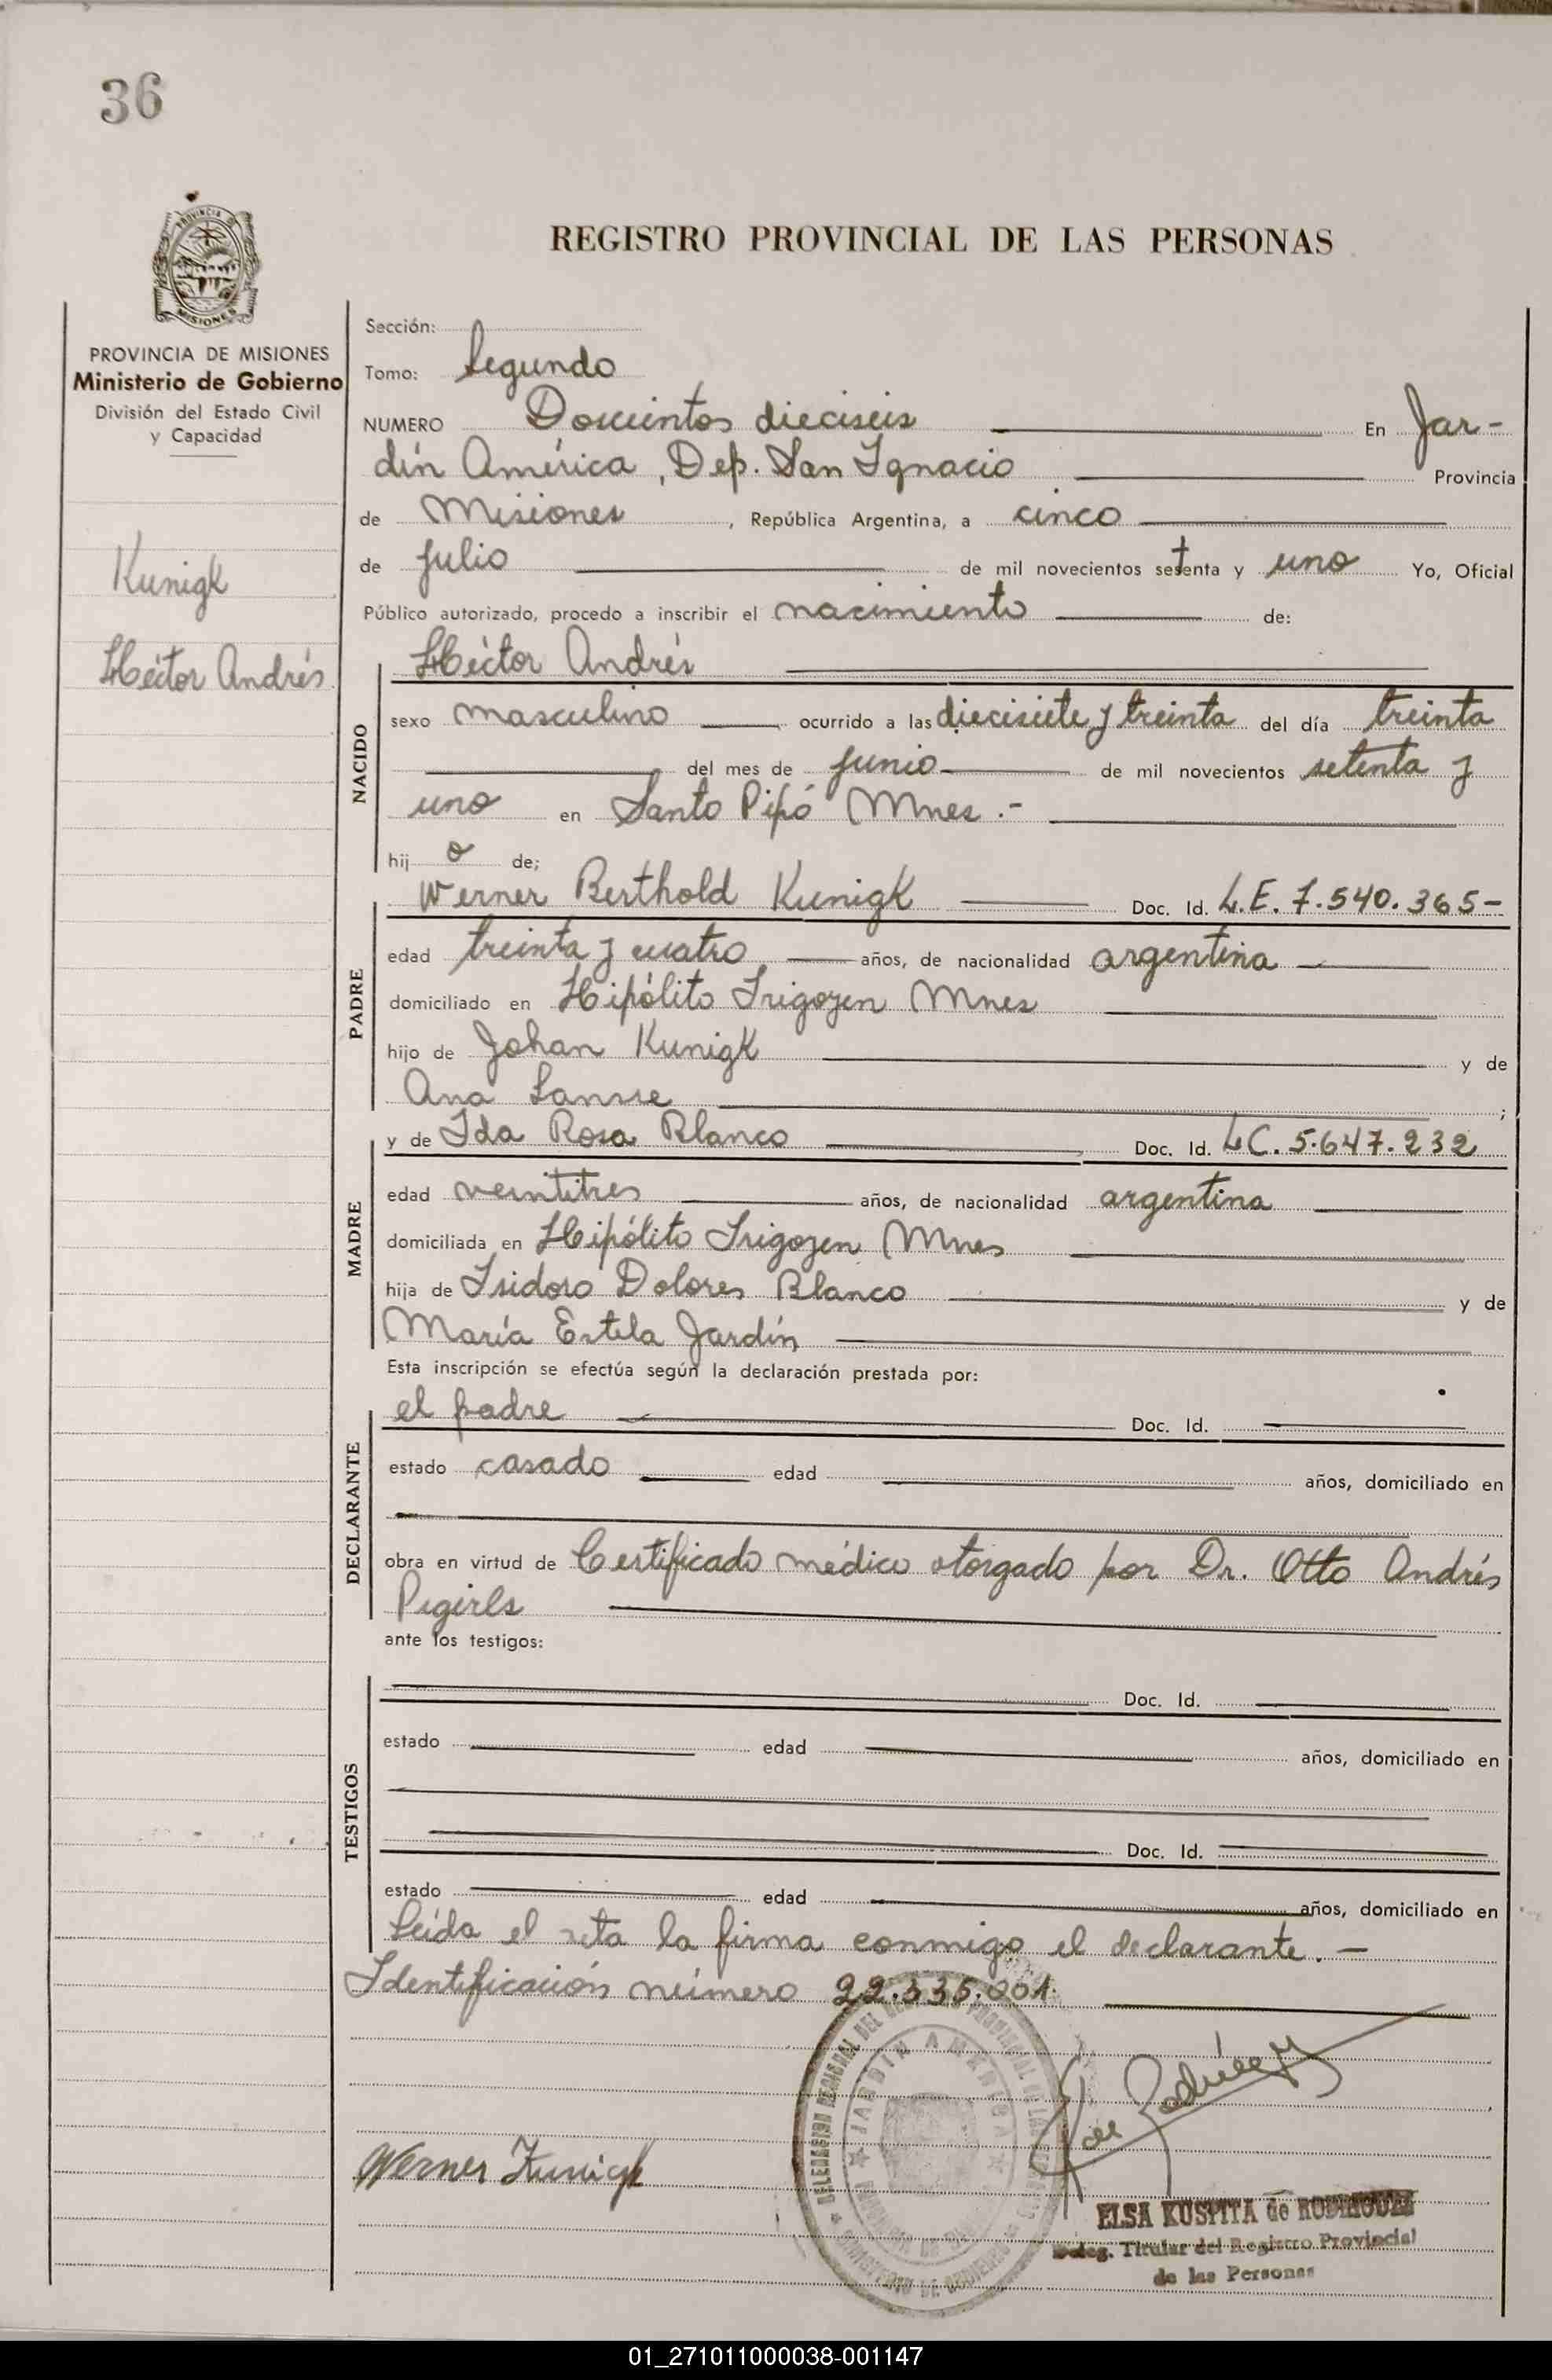 36
PROVINCIA
MISIONES
PROVINCIA DE MISIONES
Ministerio de Gobierno
División del Estado Civil
y Capacidad
Kunigk
Héctor Andrés
REGISTRO PROVINCIAL DE LAS PERSONAS
Sección:
Tomo: Segundo
NUMERO Doscientos dieciseis En Jar-
dín América, Dep. San Ignacio Provincia
de Misiones, República Argentina, a cinco
de julio de mil novecientos setenta y uno Yo, Oficial
Público autorizado, procedo a inscribir el nacimiento de:
Héctor Andrés
NACIDO
sexo masculino ocurrido a las diecisiete y treinta del día treinta
del mes de junio de mil novecientos setenta y
uno en Santo Pipó Mnes.-
hij o de;
Werner Berthold Kunigk Doc. Id. L.E. 7.540.365-
PADRE
edad treinta y cuatro años, de nacionalidad argentina
domiciliado en Hipólito Irigoyen Mnes
hijo de Johan Kunigk y de
Ana ;
y de Ida Rosa Blanco Doc. Id. L.C. 5.647.232
MADRE
edad veintitres años, de nacionalidad argentina
domiciliada en Hipólito Irigoyen Mnes
hija de Isidoro Dolores Blanco y de
María Estela Jardín
Esta inscripción se efectúa según la declaración prestada por:
el padre Doc. Id.
DECLARANTE
estado casado edad años, domiciliado en
obra en virtud de Certificado médico otorgado por Dr. Otto Andrés
ante los testigos:
Doc. Id.
TESTIGOS
estado edad años, domiciliado en
Doc. Id.
estado edad años, domiciliado en
Leída el acta la firma conmigo el declarante.-
Identificación número 22.335.001
JARDIN AMERICA
Werner Kunigk
Rodríguez
ELSA KUSPITA de RODRIGUEZ
Deleg. Titular del Registro Provincial
de las Personas
01_271011000038-001147